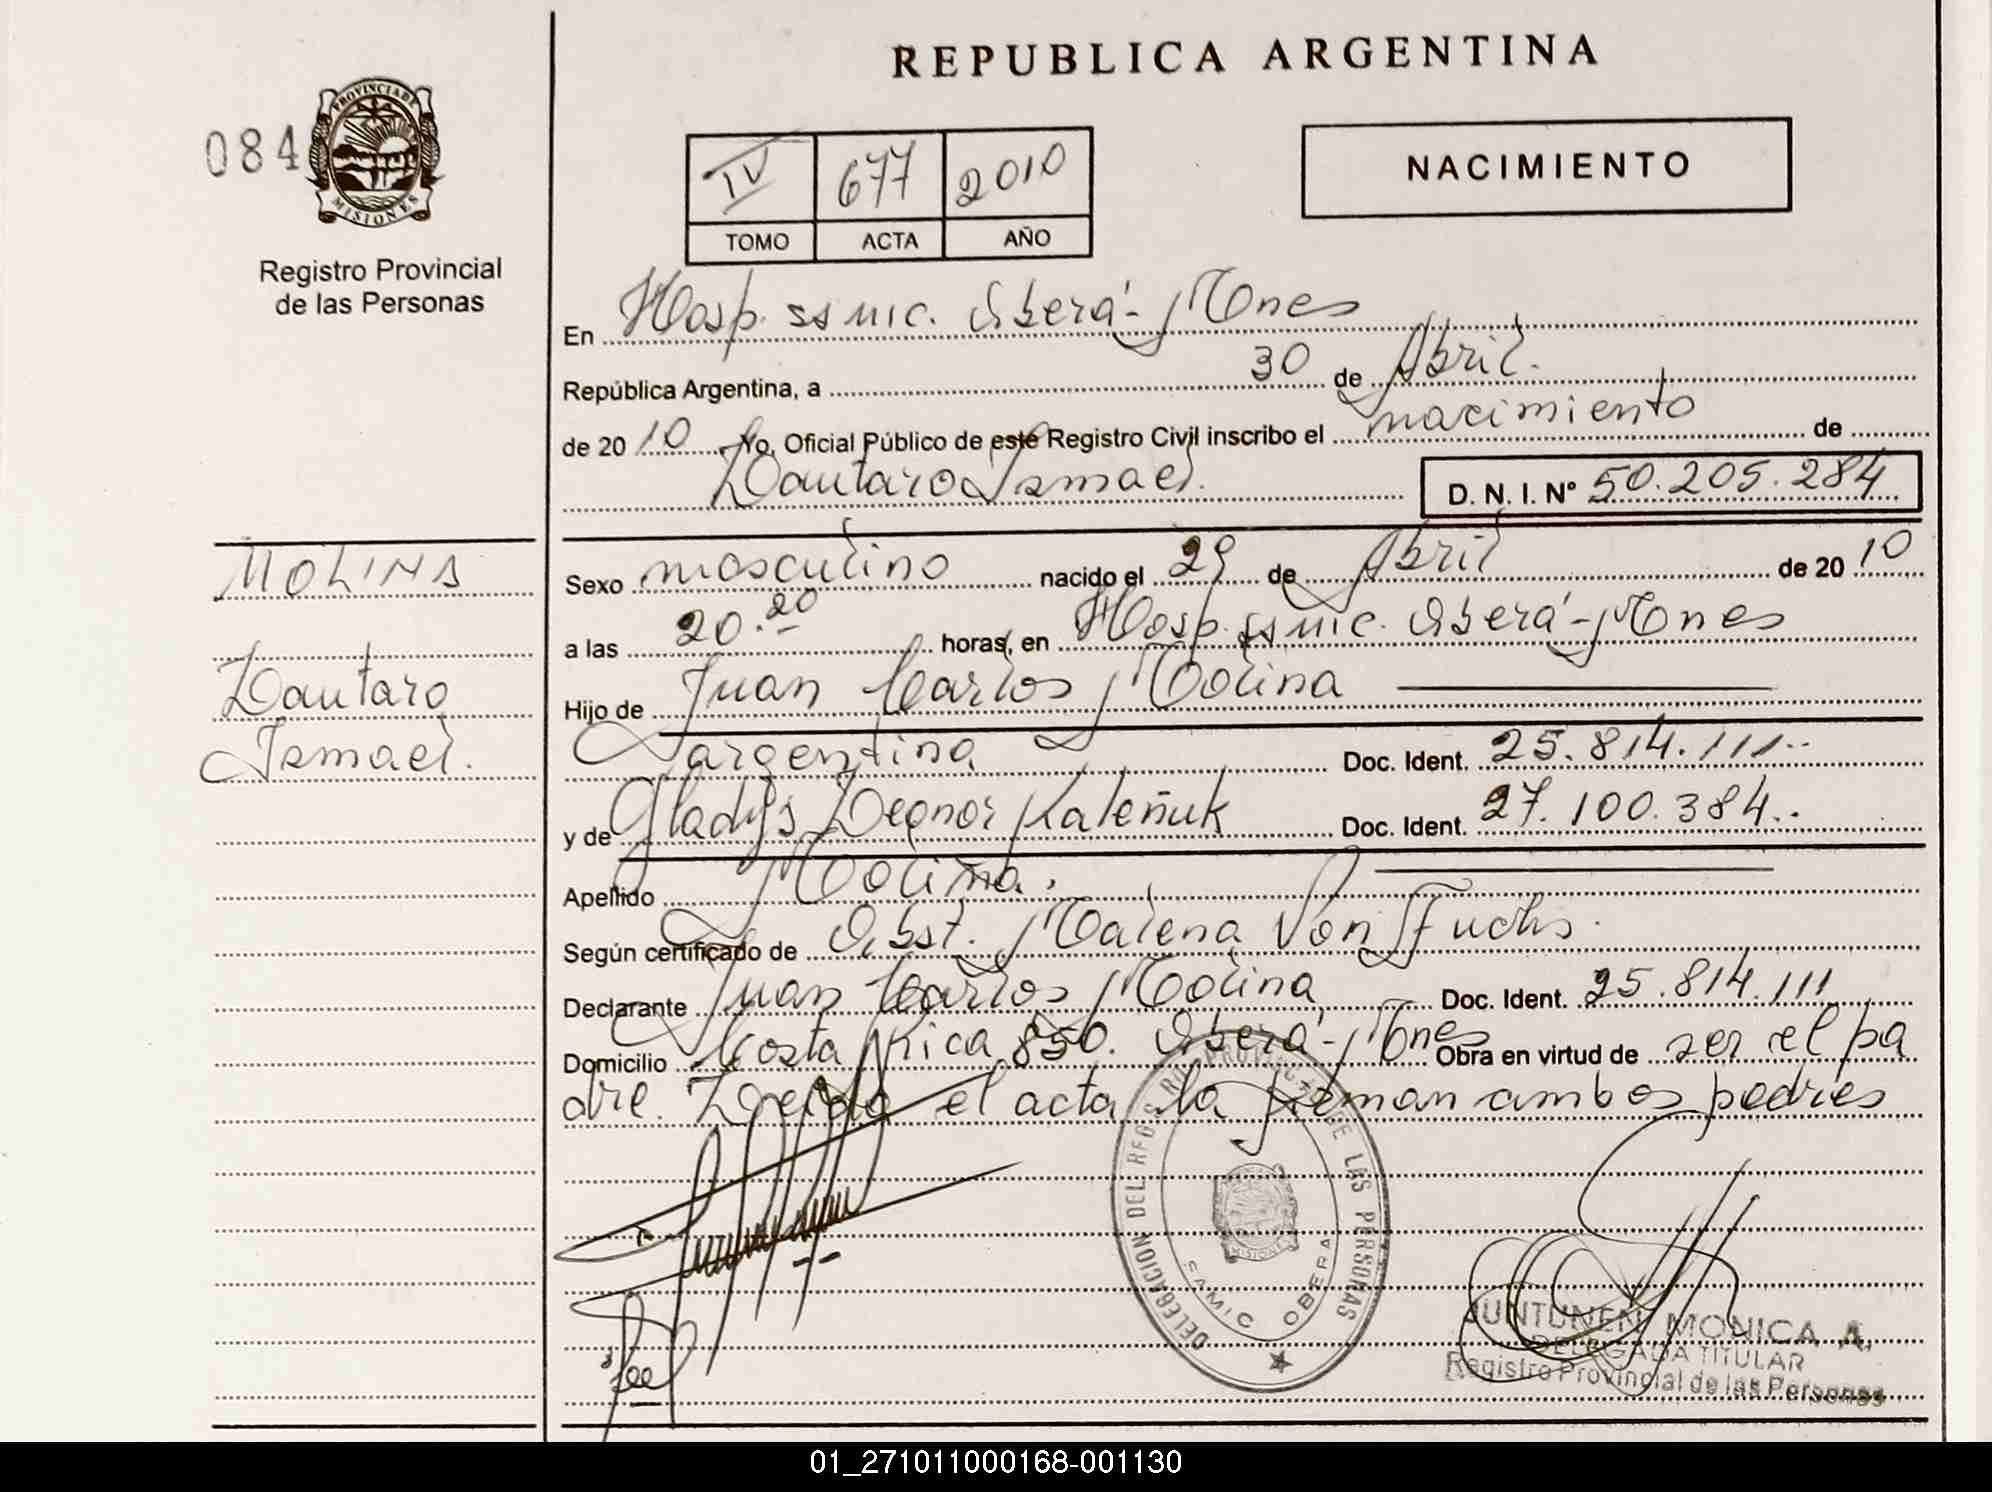 REPUBLICA ARGENTINA
084
PROVINCIA DE
MISIONES
Registro Provincial
de las Personas
IV 677 2010
TOMO ACTA AÑO
NACIMIENTO
En Hosp. ssmic. Oberá - Mnes
República Argentina, a 30 de Abril.
de 20 10 Yo, Oficial Público de este Registro Civil inscribo el nacimiento de
Lautaro Ismael. D. N. I. Nº 50.205.284
MOLINA
Lautaro
Ismael.
Sexo masculino nacido el 29 de Abril de 20 10
a las 20.20 horas, en Hosp. ssmic. Oberá - Mnes
Hijo de Juan Carlos Molina
argentina Doc. Ident. 25.814.111..
y de Gladys Leonor Kaleñuk Doc. Ident. 27.100.384..
Apellido Molina.
Según certificado de Obst. Malena Von Fuchs.
Declarante Juan Carlos Molina Doc. Ident. 25.814.111
Domicilio Costa Rica 850. Oberá - Mnes Obra en virtud de ser el pa
dre. Leida el acta la firman ambos padres
DELEGACION DEL REGISTRO PROVINCIAL DE LAS PERSONAS
MISIONES
SAMIC OBERA
JUNTUNEN MONICA A.
DELEGADA TITULAR
Registro Provincial de las Personas
01_271011000168-001130